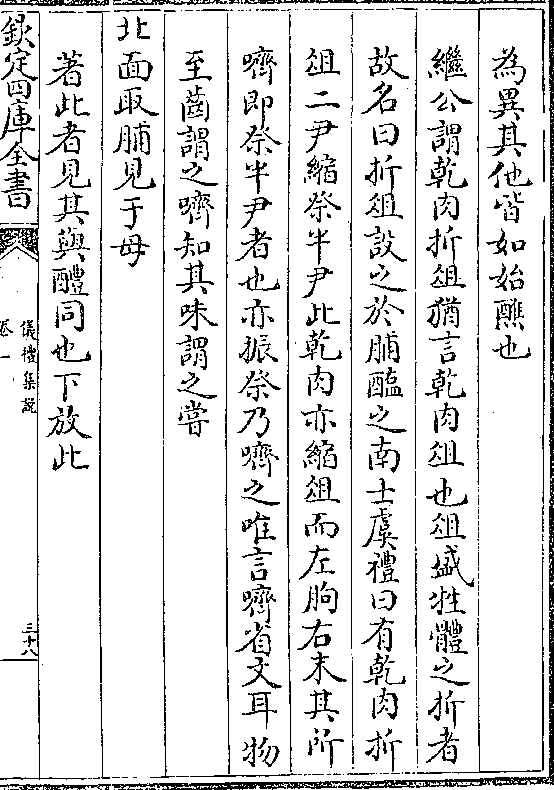 為異其他皆如始醮也
繼公謂乾肉折俎猶言乾肉俎也俎盛牲體之折者
故名曰折俎設之於脯醢之南士虞禮曰有乾肉折
俎二尹縮祭半尹此乾肉亦縮俎而左朐右末其所
嚌即祭半尹者也亦振祭乃嚌之唯言嚌省文耳物
至齒謂之嚌知其味謂之嘗
北面取脯見于母
著此者見其與醴同也下放此
欽定四庫全書
儀禮集說
卷一
三十八